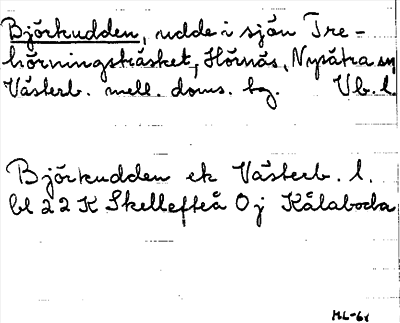 Björkudden, udde i sjön Tre-
hörningsträsket, Hörnäs, Nysätra sn
Västerb. mell. doms. hg. Vb. l.
Björkudden ek Västerb. l.
bl 22 K Skellefteå 0 j Kålaboda
ML-61